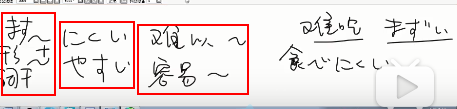 ます
形＋
动词
にくい
やすい
难以～
容易～
难吃 まずい
食べにくい